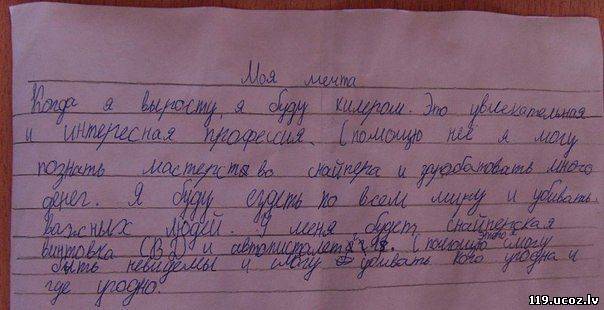 Моя мечта
Когда я выросту, я буду килером. Это увлекательная
и интересная профессия. С помощю неё я могу
познать мастерство снайпера и зарабатовать много
денег. Я буду ездеть по всем миру и убивать
важных людей. У меня будет снайперская
винтовка (ВД) и автописполет. С помощю этого я смогу
быть невидемы и смогу убивать кого угодно и
где угодно.
119.ucoz.lv